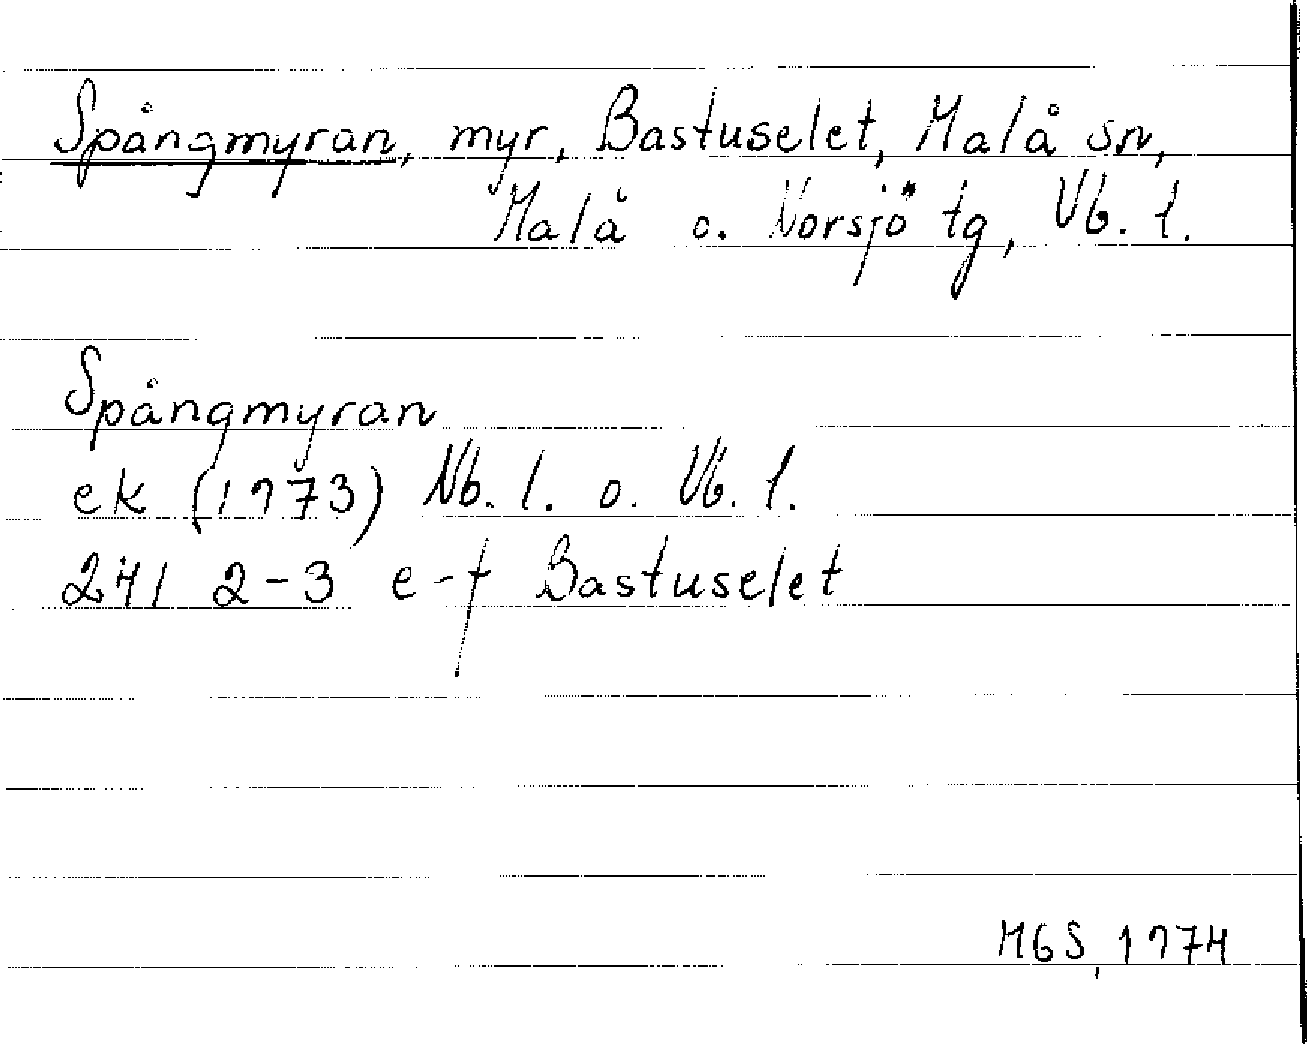 Spångmyran, myr, Bastuselet, Malå sn,
Malå o. Norsjö tg, Vb. l.
Spångmyran
ek (1973) Nb. l. o. Vb. l.
24 I 2-3 e-f Bastuselet
MGS, 1974